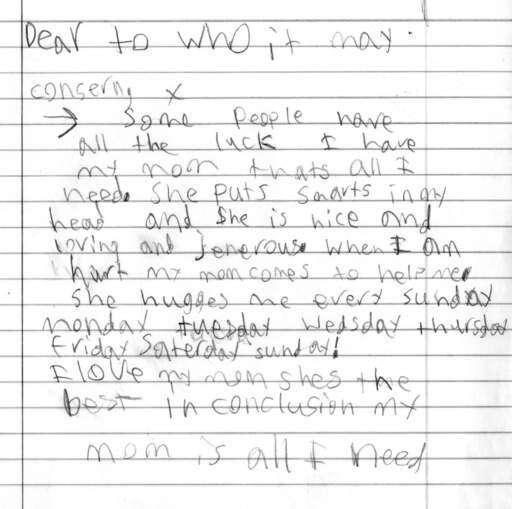 Dear to who it may.
consern, x
→ Some people have
all the luck I have
my mom thats all I
need. She puts smarts in my
head and she is nice and
loving and jenerous. When I am
hurt my mom comes to help me.
She hugges me every sunday
monday tuesday Wedsday thursday
friday Saterday sunday!
I love my mom shes the
best in conclusion my
mom is all I need